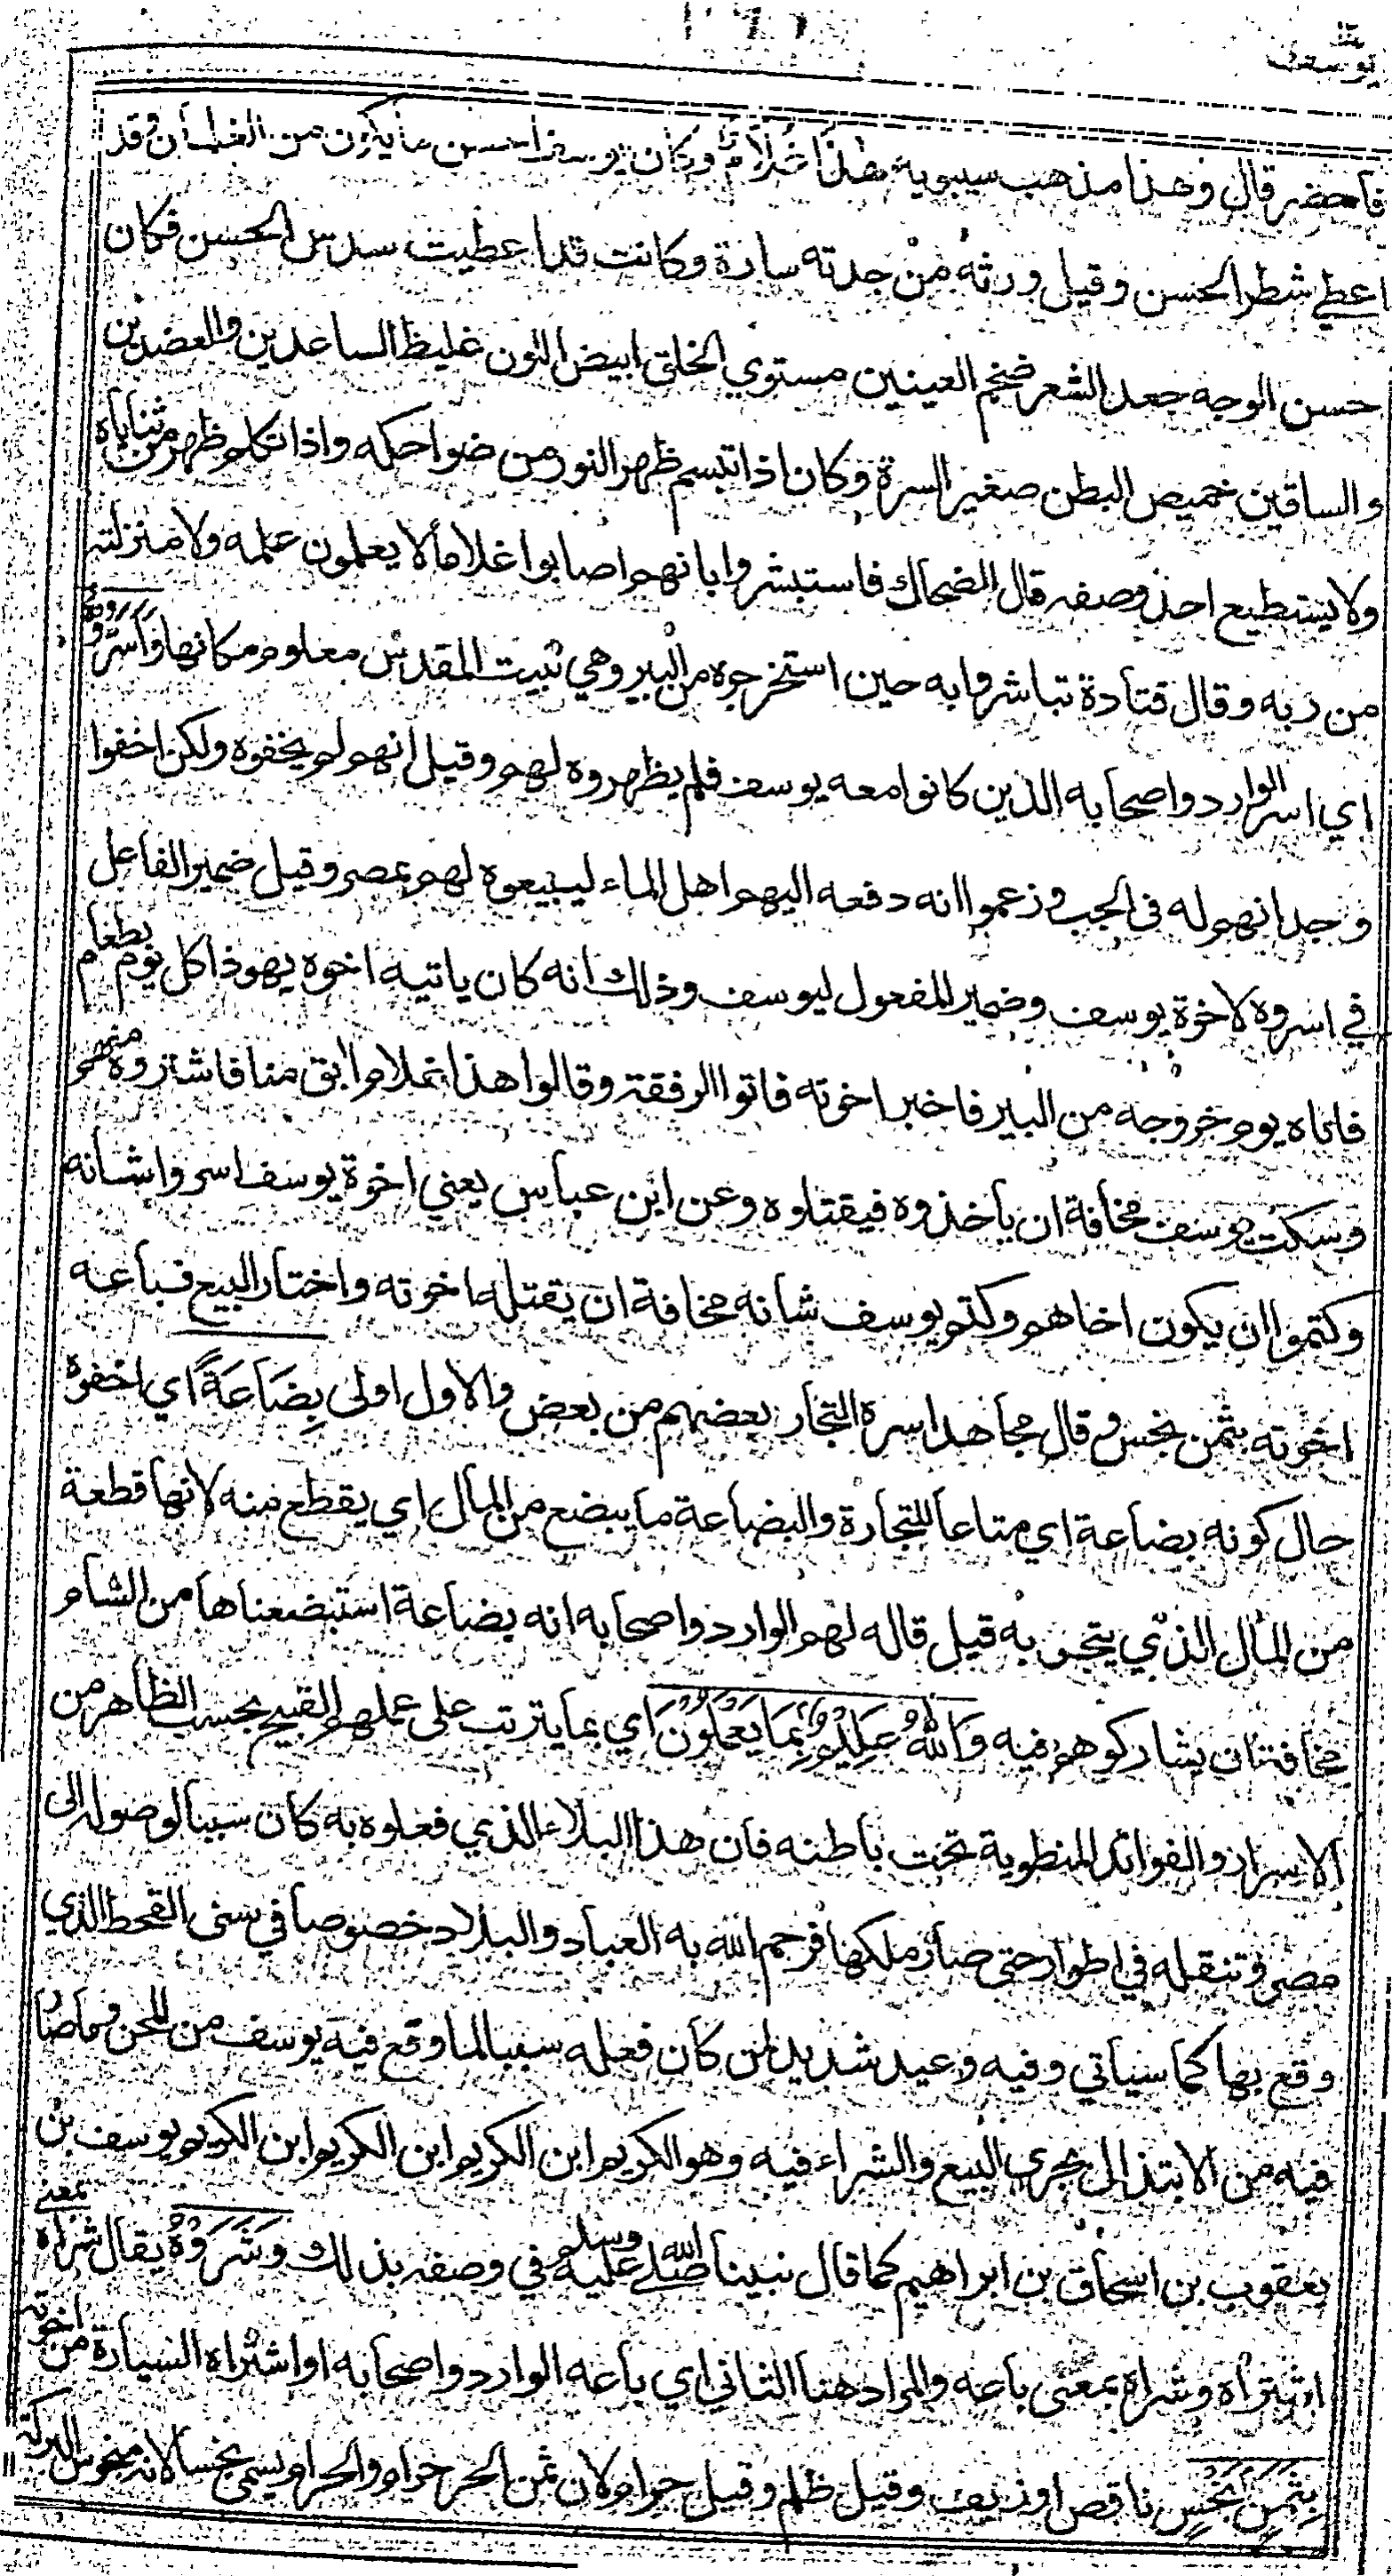 يوسف
فاحضر قال وهذا مذهب سيبويه هٰذَا غُلَامٌ وكان يوسف احسن ما يكون من الغلمان وقد
اعطي شطر الحسن وقيل ورثه من جدته سارة وكانت قد اعطيت سدس الحسن فكان
حسن الوجه جعد الشعر ضخم العينين مستوي الخلق ابيض اللون غليظ الساعدين والعضدين
والساقين خميص البطن صغير السرة وكان اذا تبسم ظهر النور من ضواحكه واذا تكلم ظهر من ثناياه
ولا يستطيع احد وصفه قال الضحاك فاستبشروا بانهم اصابوا غلاما لا يعلمون علمه ولا منزلته
من ربه وقال قتادة تباشروا به حين استخرجوه من البير وهي ببيت المقدس معلوم مكانها وَاَسَرُّوْهُ
اي اسر الوارد واصحابه الذين كانوا معه يوسف فلم يظهروه لهم وقيل انهم لم يخفوه ولكن اخفوا
وجدانهم له فى الجب وزعموا انه دفعه اليهم اهل الماء ليبيعوه لهم بمصر وقيل ضمير الفاعل
في اسروه لاخوة يوسف وضمير المفعول ليوسف وذلك انه كان ياتيه اخوه يهوذا كل يوم بطعام
فاتاه يوم خروجه من البير فاخبر اخوته فاتوا الرفقة وقالوا هذا غلام ابق منا فاشتروه منهم
وسكت يوسف مخافة ان ياخذوه فيقتلوه وعن ابن عباس يعني اخوة يوسف اسروا شانه
وكتموا ان يكون اخاهم وكتم يوسف شانه مخافة ان يقتله اخوته واختار البيع فباعه
اخوته بثمن بخس وقال مجاهد اسره التجار بعضهم من بعض والاول اولى بِضَاعَةً اي اخفوه
حال كونه بضاعة اي متاعا للتجارة والبضاعة ما يبضع من المال اي يقطع منه لانها قطعة
من المال الذي يتجر به قيل قاله لهم الوارد واصحابه انه بضاعة استبضعناها من الشام
مخافة ان يشاركوهم فيه وَاللهُ عَلِيْمٌ بِمَا يَعْمَلُوْنَ اي بما يترتب على عملهم القبيح بحسب الظاهر من
الاسرار والفوائد المنطوية تحت باطنه فان هذا البلاء الذي فعلوه به كان سببا لوصوله الى
مصر وتنقله في اطوار حتى صار ملكها فرحم الله به العباد والبلاد خصوصا في سنى القحط الذي
وقع بها كما سياتي وفيه وعيد شديد لمن كان فعله سببا لما وقع فيه يوسف من المحن وما صار
فيه من الابتذال بجري البيع والشراء فيه وهو الكريم ابن الكريم ابن الكريم ابن الكريم يوسف بن
يعقوب بن اسحاق بن ابراهيم كما قال نبينا صلى الله عليه وسلم في وصفه بذلك وَشَرَوْهُ يقال شراه بمعنى
اشتراه وشراه بمعنى باعه والمراد هنا الثاني اي باعه الوارد واصحابه او اشتراه السيارة من اخوته
بِثَمَنٍ بَخْسٍ ناقص او زيف وقيل ظلم وقيل حرام لان ثمن الحر حرام والحرام يسمى بخسا لانه مبخوس البركة